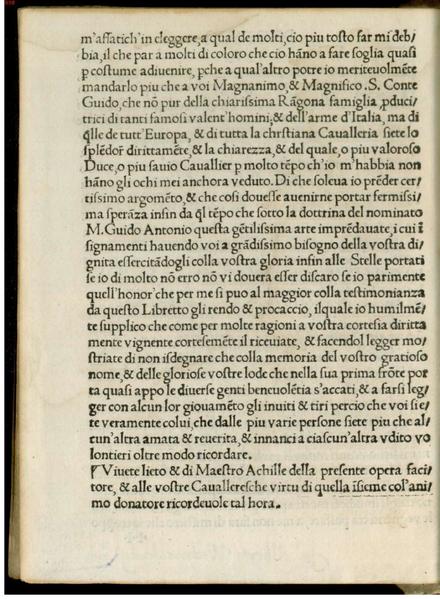 m'affatich'in eleggere, a qual de molti, cio piu tosto far mi deb/
bia, il che par a molti di coloro che cio hãno a fare soglia quasi
p costume adiuenire, pche a qual'altro potre io meriteuolmẽte
mandarlo piu che a voi Magnanimo, & Magnifico .S. Conte
Guido, che nõ pur della chiarissima Rãgona famiglia pduci/
trici di tanti famosi valent'homini, & dell'arme d'Italia, ma di
qlle de tutt'Europa, & di tutta la chrstiana Caualleria siete lo
splẽdor dirittamẽte, & la chiarezza, & del quale, o piu valoroso
Duce, o piu sauio Cauallier p molto tẽpo ch'io m'habbia non
hãno gli ochi mei anchora veduto. Di che soleua io prẽder cer/
tissimo argomẽto, & che cosi douesse auenirne portar fermissi/
ma sperãza insin da ql tẽpo che sotto la dottrina del nominato
M. Guido Antonio questa gẽtilissima arte imprẽdauate, i cui ĩ
signamenti hauendo voi a grãdissimo bisogno della vostra di/
gnita essercitãdogli colla vostra gloria infin alle Stelle portati
se io di molto nõ erro nõ vi douera esser discaro se io parimente
quell'honor'che per me si puo al maggior colla testimonianza
da questo Libretto gli rendo & procaccio, ilquale io humilmẽ/
te supplico che come per molte ragioni a vostra cortesia diritta
mente vignente cortesemẽte il riceuiate, & facendol legger mo/
striate di non isdegnare che colla memoria del vostro gratioso
nome, & delle gloriose vostre lode che nella sua prima frõte por
ta quasi appo le diuerse genti beneuolẽtia s'accati, & a farsi leg/
ger con alcun lor giouamẽto gli inuiti & tiri percio che voi si e/
te veramente colui, che dalle piu varie persone siete piu che al/
cun'altra amata & reuerita, & innanci a ciascun'altra vdito vo
lontieri oltre modo ricordare.
Viuete lieto & di Maestro Achille della presente opera faci/
tore, & alle vostre Caualleresche virtu di quella ĩsieme col'ani/
mo donatore ricordeuole tal hora.